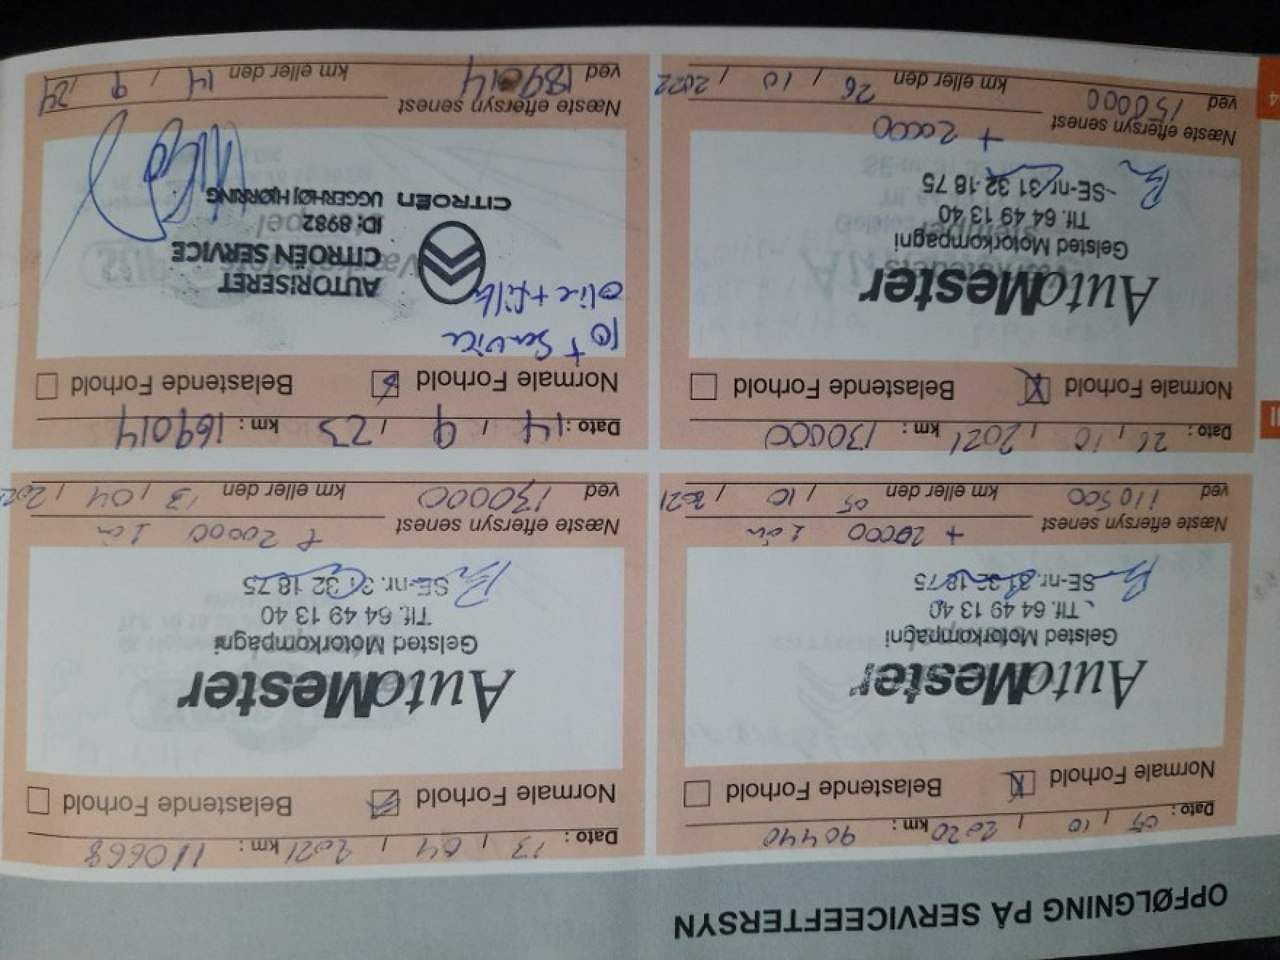 OPFØLGNING PÅ SERVICEEFTERSYN
Dato : 05 / 10 / 2020 km : 90440
Normale Forhold Belastende Forhold
AutoMester
Gelsted Motorkompagni
Tlf. 64 49 13 40
SE-nr. 31 32 18 75
Næste eftersyn senest + 20000 1 år
ved 110500 km eller den 05 / 10 / 2021
Dato : 13 / 04 / 2021 km : 110668
Normale Forhold Belastende Forhold
AutoMester
Gelsted Motorkompagni
Tlf. 64 49 13 40
SE-nr. 31 32 18 75
Næste eftersyn senest + 20000 1 år
ved 130000 km eller den 13 / 04 /
Dato : 26 / 10 / 2021 km : 130000
Normale Forhold Belastende Forhold
AutoMester
Gelsted Motorkompagni
Tlf. 64 49 13 40
SE-nr. 31 32 18 75
Næste eftersyn senest + 20000
ved 150000 km eller den 26 / 10 / 2022
Dato : 14 / 9 / 23 km : 169014
Normale Forhold Belastende Forhold
Service
olie + filt
AUTORISERET
CITROËN SERVICE
ID: 8982
CITROËN UGGERHØJ HJØRRING
Næste eftersyn senest
ved 189014 km eller den 14 / 9 / 24
II
4